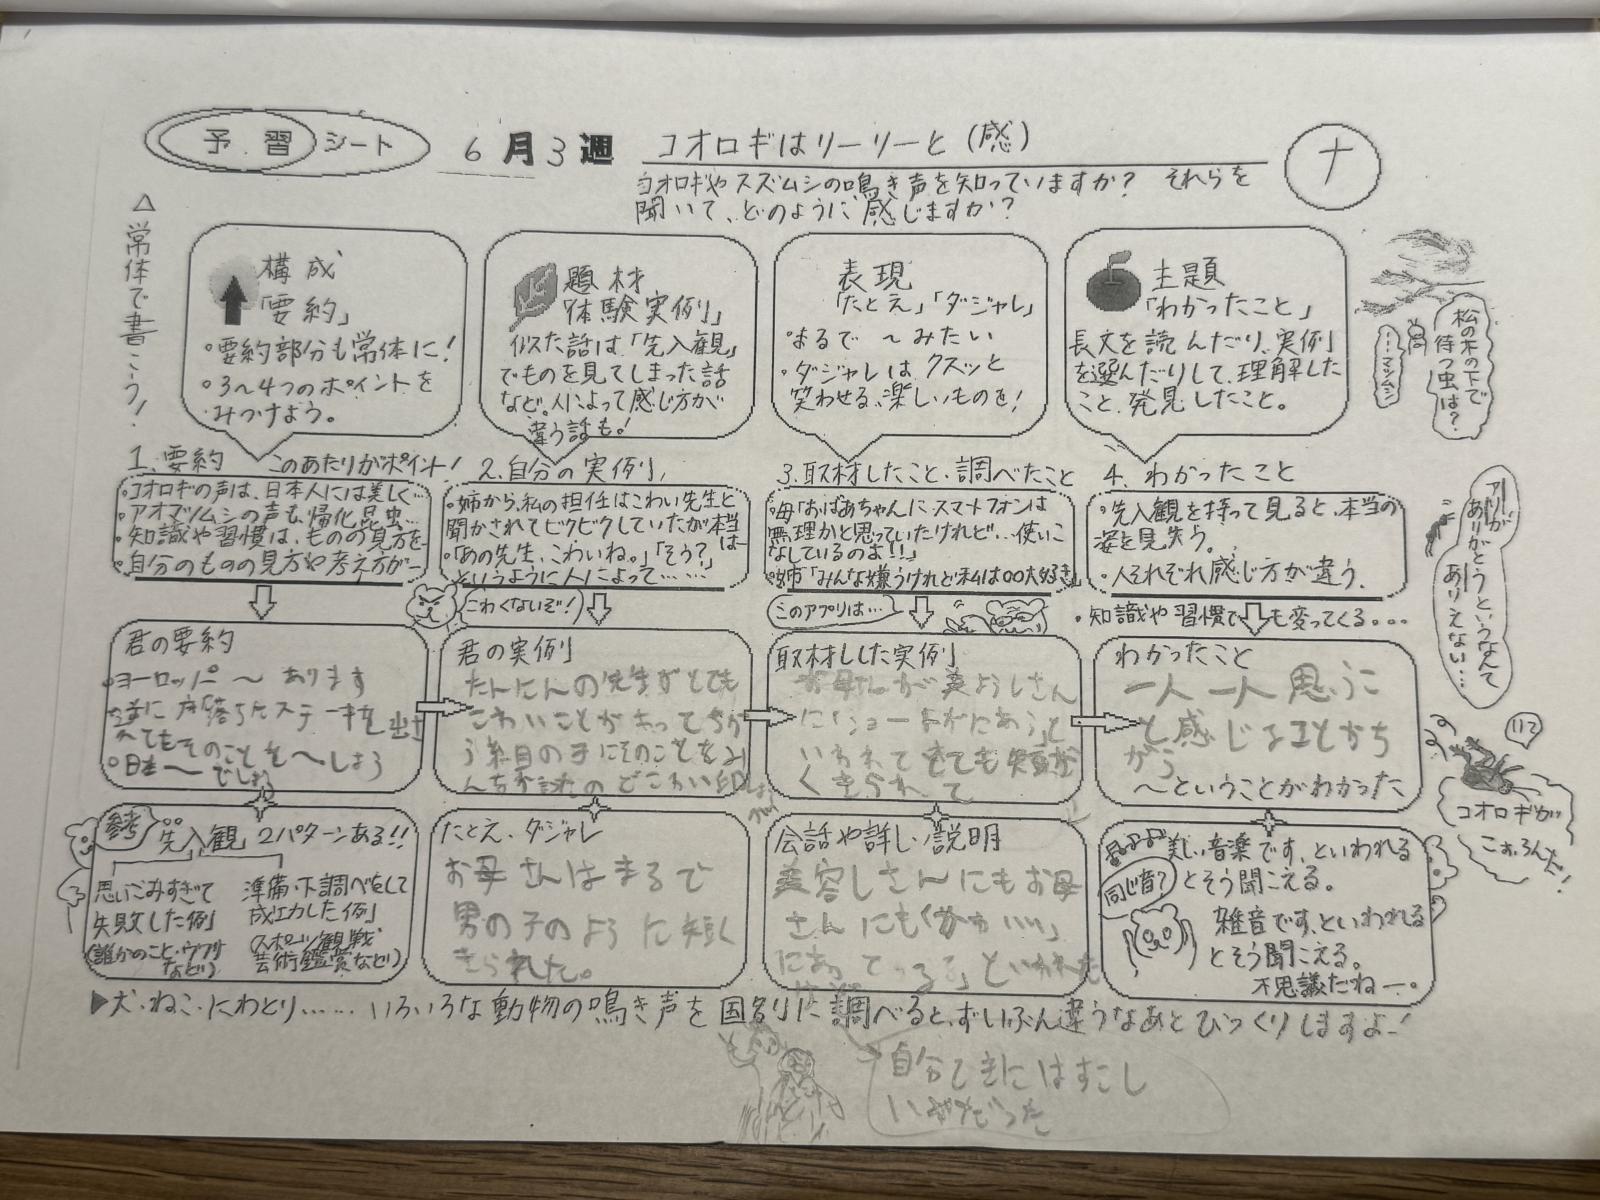 予習シート 6月3週 コオロギはリーリーと(感) ナ
コオロギやスズムシの鳴き声を知っていますか? それらを
聞いて、どのように感じますか?
△常体で書こう!
構成
「要約」
・要約部分も常体に!
・3〜4つのポイントを
みつけよう。
題材
「体験実例」
似た話は「先入観」
でものを見てしまった話
など。人によって感じ方が
違う話も!
表現
「たとえ」「ダジャレ」
・まるで 〜みたい
・ダジャレは、クスッと
笑わせる、楽しいものを!
主題
「わかったこと」
長文を読んだり、実例
を選んだりして、理解した
こと、発見したこと。
松の木の下で
待つ虫は?
…マツムシ
1.要約 このあたりがポイント!
・コオロギの声は、日本人には美しく…
・アオマツムシの声も、帰化昆虫…
・知識や習慣は、ものの見方を…
・自分のものの見方や考え方が…
2.自分の実例
・姉から、私の担任はこわい先生と
聞かされてビクビクしていたが本当は…
・「あの先生、こわいね。」「そう?」
というように人によって……
3.取材したこと・調べたこと
・母「おばあちゃんに、スマートフォンは
無理かと思っていたけれど…使いこ
なしているのよ!!」
・姉「みんな嫌うけれど私は○○大好き」
4.わかったこと
・先入観を持って見ると、本当の
姿を見失う。
・人それぞれ感じ方が違う。
・知識や習慣でも変ってくる。。。
アリが
ありがとうというなんて
ありえない…
こわくないぞ!
このアプリは…
君の要約
・ヨーロッパ 〜 あります
逆に床に落ちたステーキを出
そのことを〜しょう
・日本〜でしょう
君の実例
たんにんの先生がとても
こわいことがあってちが
う組目の子にそのことをみ
取材しした実例
お母さんが美ようしさん
に「ショートがにあう」と
いわれてとても短か
くきられて
わかったこと
一人一人思うこ
と感じることがち
がう
〜ということがわかった
リリリ
コオロギが
こおろんだ!
参考 先入観 2パターンある!!
思いこみすぎて
失敗した例
(誰かのこと・ウワサ
など)
準備・下調べをして
成功した例
(スポーツ観戦
芸術鑑賞など)
たとえ、ダジャレ
お母さんはまるで
男の子のように短く
きられた。
会話や詳しい説明
美容しさんにもお母
さんにも「かわいい」
にあってるよ」といわれた
同じ音?
美しい音楽です、といわれる
とそう聞こえる。
雑音です、といわれる
とそう聞こえる。
不思議だねー。
▶犬・ねこ・にわとり……いろいろな動物の鳴き声を国別に調べると、ずいぶん違うなあとびっくりしますよ!
自分てきにはすこし
いやだった